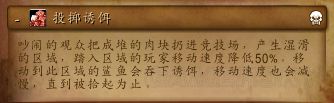 - 投掷诱饵
吵闹的观众把成堆的肉块扔进竞技场，产生湿滑
的区域，踏入区域的玩家移动速度降低50%。移
动到此区域的鲨鱼会吞下诱饵，移动速度也会减
慢，直到被拾起为止。